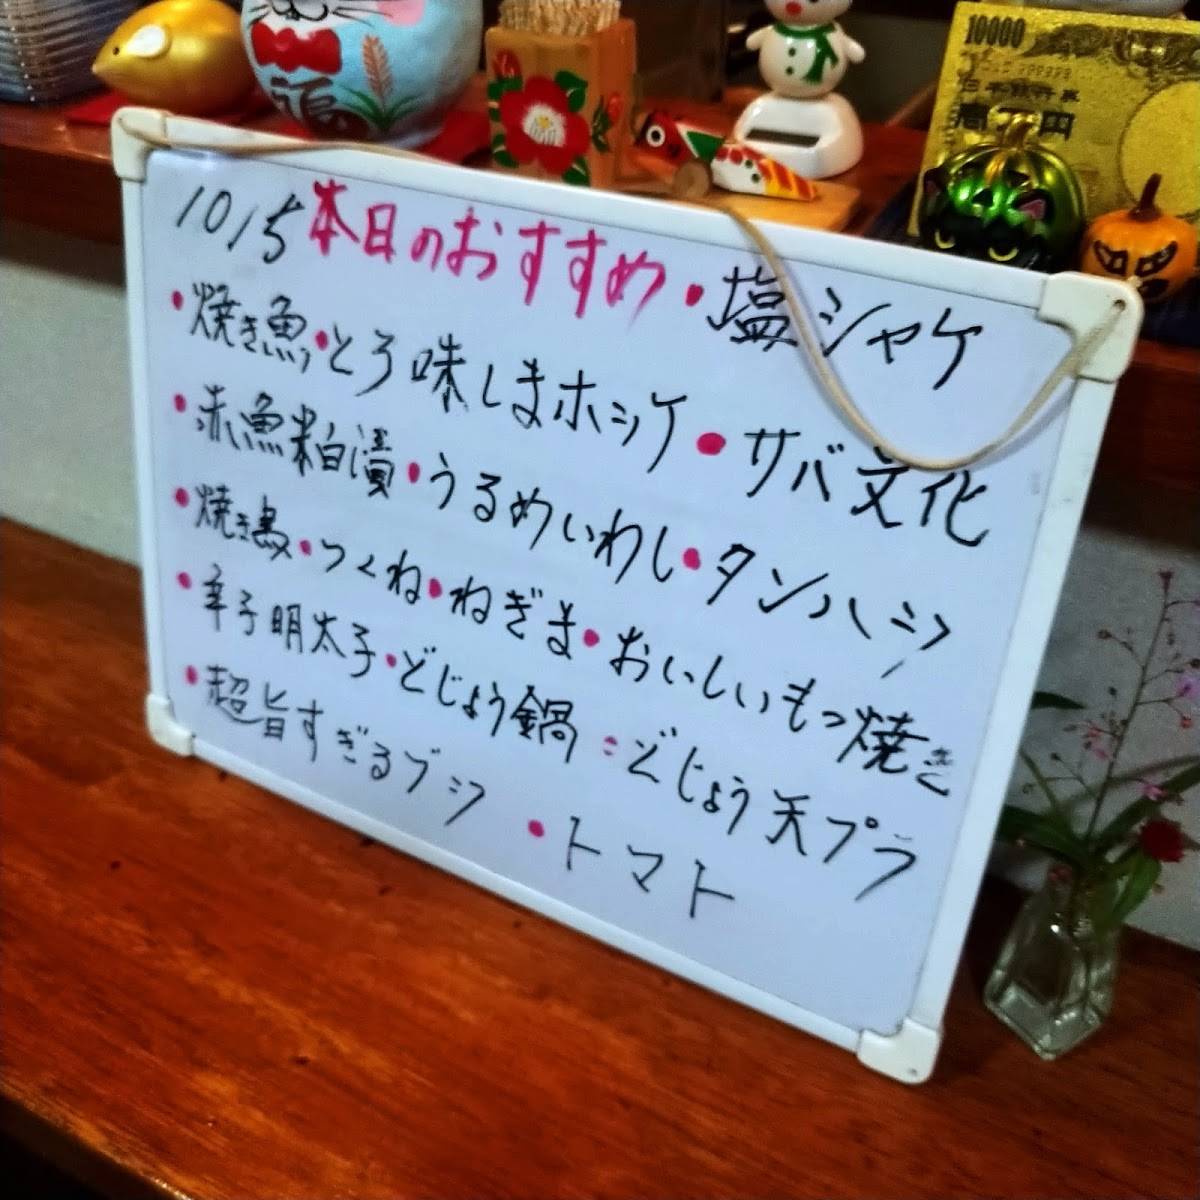 福
10000
壱万円
10/5 本日のおすすめ・塩シャケ
・焼き魚・とろ味しまホッケ・サバ文化
・赤魚粕漬・うるめいわし・タンハシ
・焼き鳥・つくね・ねぎま・おいしいもつ焼き
・辛子明太子・どじょう鍋:どじょう天プラ
・超旨すぎるブシ ・トマト